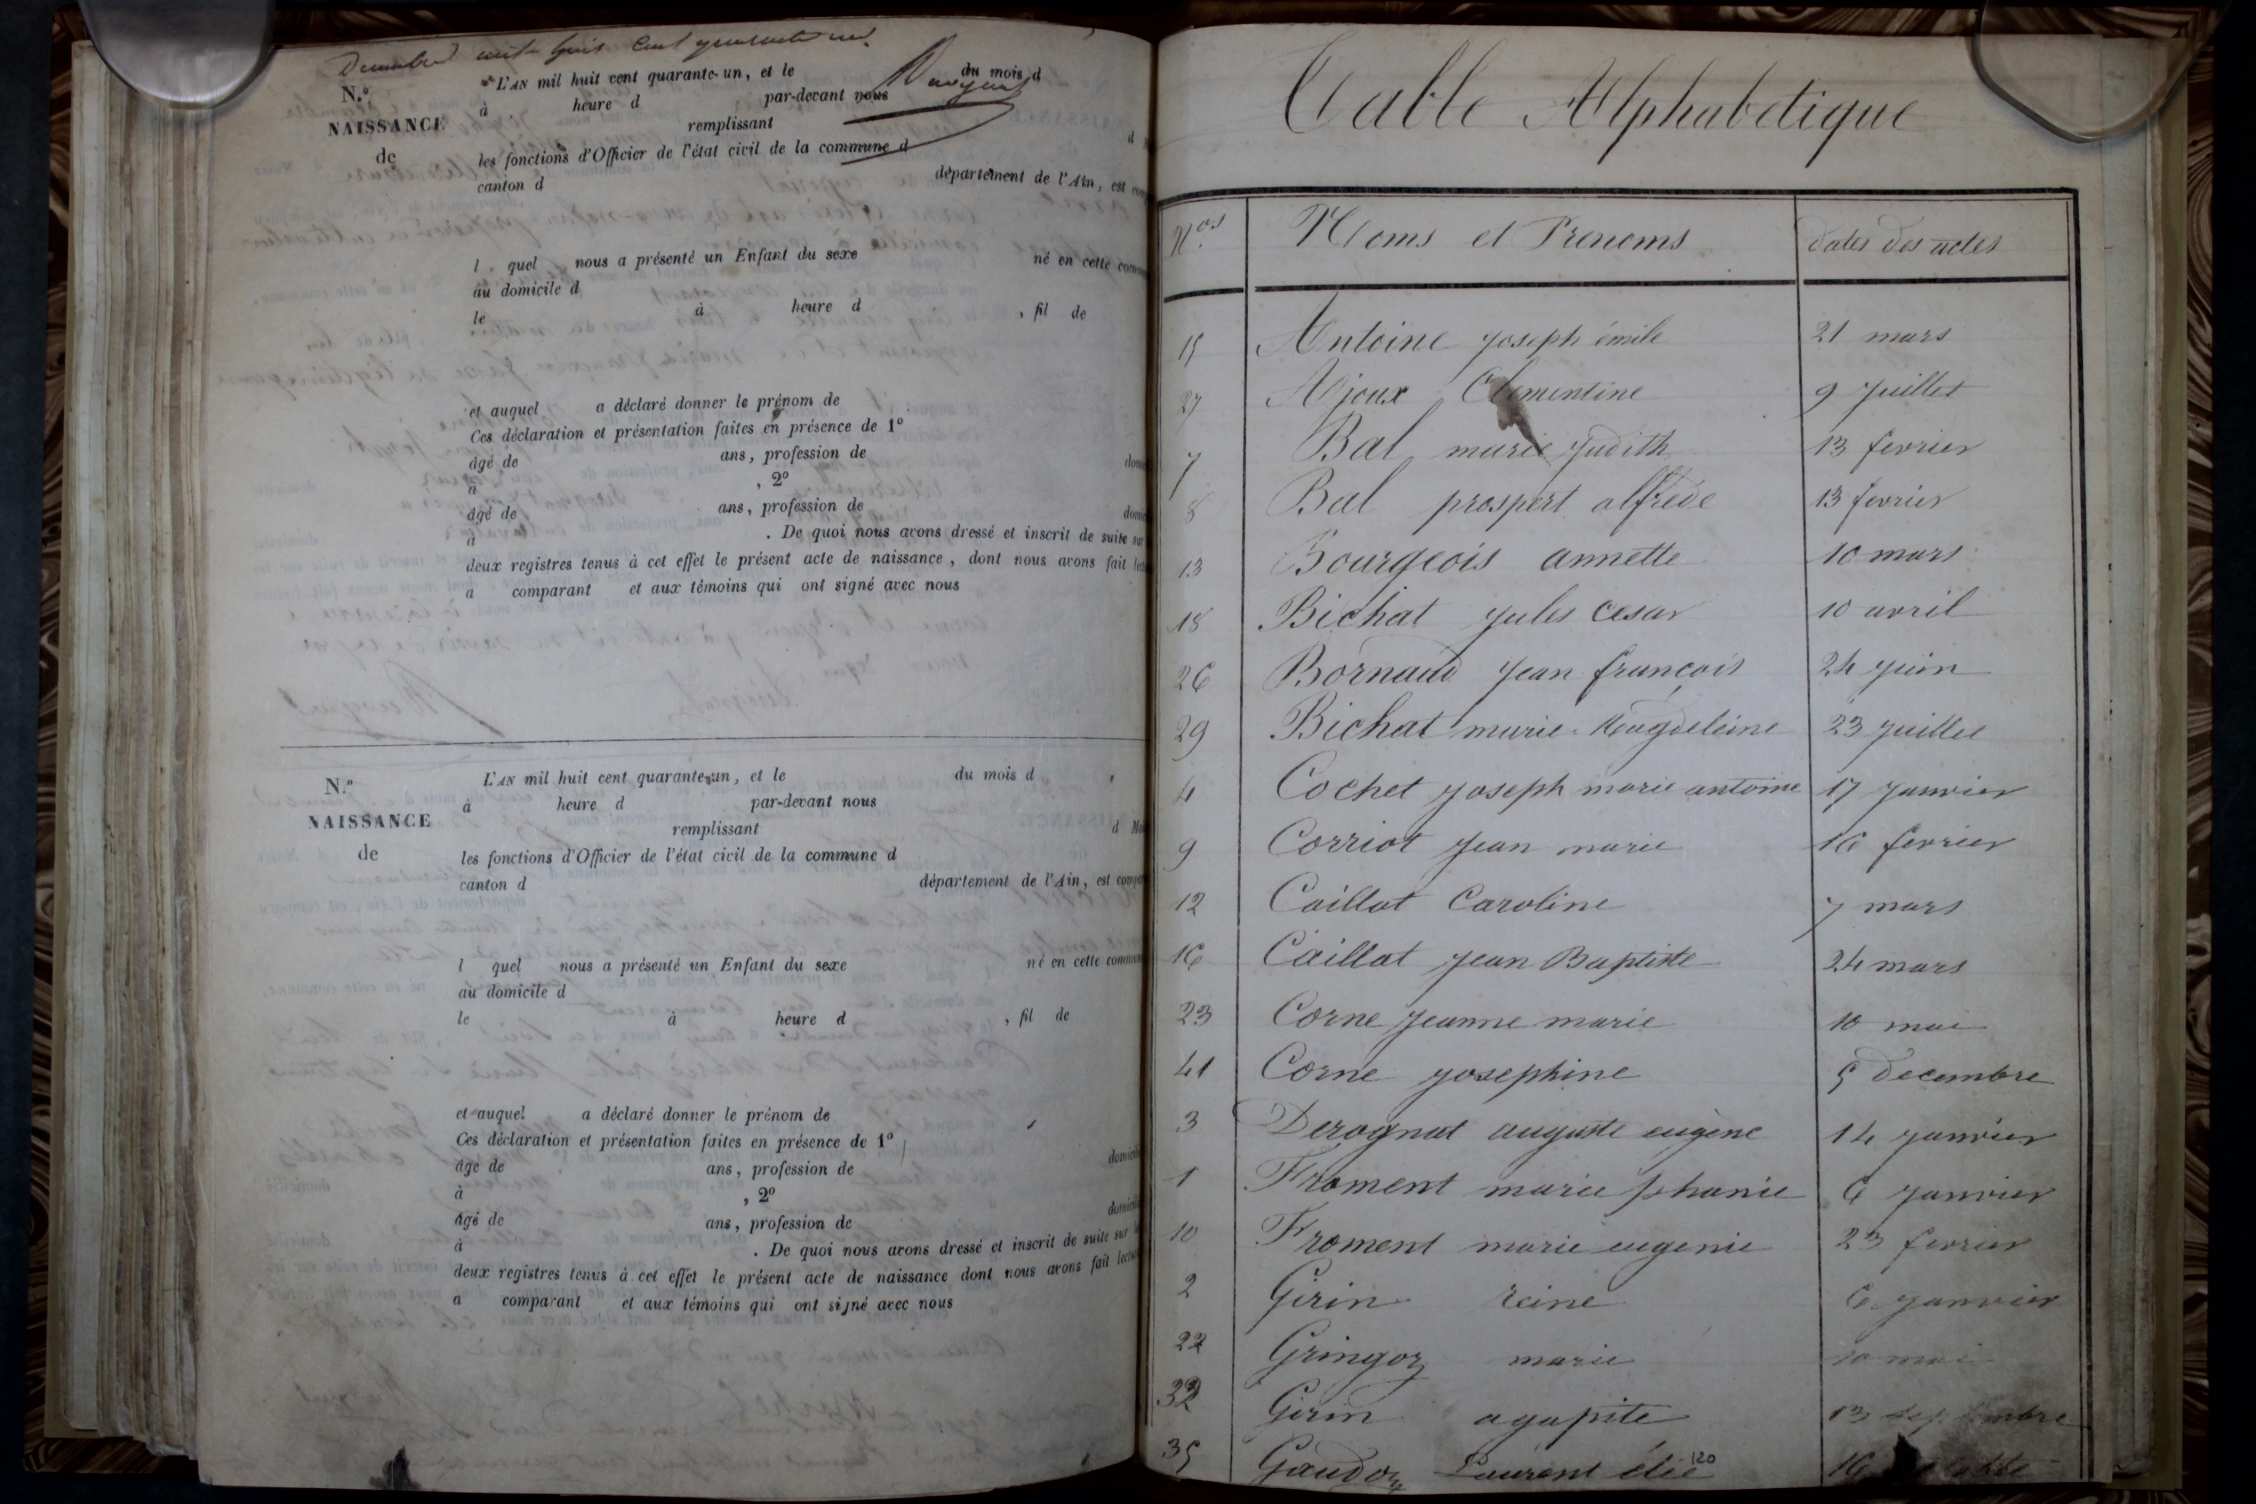 N.º
NAISSANCE
de
L'AN mil huit cent quarante-un, et le du mois d
à heure d par-devant nous
remplissant
les fonctions d'Officier de l'état civil de la commune d
canton d département de l'Ain, est
l quel nous a présenté un Enfant du sexe né en cette
au domicile d
le à heure d , fil de
et auquel a déclaré donner le prénom de
Ces déclaration et présentation faites en présence de 1º
âgé de ans, profession de
à , 2º
âgé de ans, profession de
à . De quoi nous avons dressé et inscrit de suite sur
deux registres tenus à cet effet le présent acte de naissance, dont nous avons fait
a comparant et aux témoins qui ont signé avec nous
N.º
NAISSANCE
de
L'AN mil huit cent quarante-un, et le du mois d
à heure d par-devant nous
remplissant
les fonctions d'Officier de l'état civil de la commune d
canton d département de l'Ain, est
l quel nous a présenté un Enfant du sexe né en cette
au domicile d
le à heure d , fil de
et auquel a déclaré donner le prénom de
Ces déclaration et présentation faites en présence de 1º
âgé de ans, profession de
à , 2º
âgé de ans, profession de
à . De quoi nous avons dressé et inscrit de suite sur
deux registres tenus à cet effet le présent acte de naissance dont nous avons fait
a comparant et aux témoins qui ont signé avec nous
Table Alphabetique
Nos Noms et Prenoms dates des actes
15 Antoine joseph émile 21 mars
27 Ajoux Clementine 9 juillet
7 Bal marie judith 13 fevrier
8 Bal prospert alfrede 13 fevrier
13 Bourgeois annette 10 mars
18 Bichat jules cesar 10 avril
26 Bornaud jean francois 24 juin
29 Bichat marie Magdeleine 23 juillet
4 Cochet joseph marie antoine 17 janvier
9 Corriot jean marie 16 fevrier
12 Caillat Caroline 7 mars
16 Caillat jean Baptiste 24 mars
23 Corne jeanne marie 10 mai
41 Corne josephine 5 decembre
3 Derognat auguste eugène 14 janvier
1 Froment marie phanie 6 janvier
10 Froment marie eugenie 23 fevrier
2 Girin reine 6 janvier
22 Gringoz marie 10 mai
32 Girin agapite 13 septembre
35 Gaudoz Laurent élie 16
120